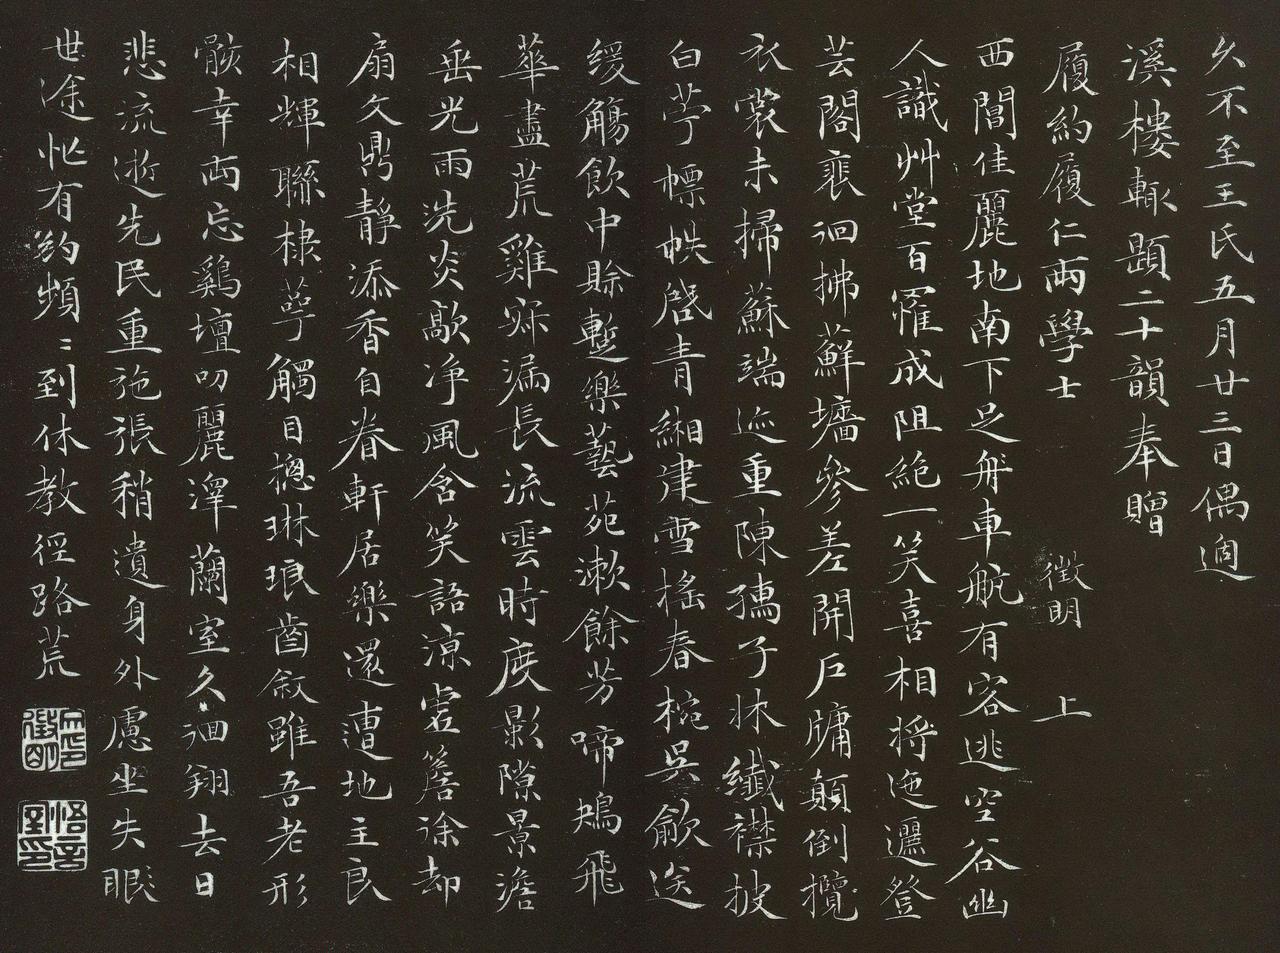 久不至王氏五月廿三日偶適
溪樓輒題二十韻奉贈
履約履仁兩學士 徵明 上
西閶佳麗地南下足舟車航有客逃空谷幽
人識艸堂百罹成阻絕一笑喜相將迤邐登
芸閣裵洄拂蘚墻參差開戶牖顛倒攬
衣裳未掃蘇端迹重陳孺子牀纖襟披
白苧幖帙啓青緗建雪榣春椀吳歈送
緩觴飲中賒蹔樂藝苑漱餘芳啼鴂飛
華盡荒雞寐漏長流雲時度影隙景澹
垂光雨洗炎歊净風含笑語涼虛簷徐却
扇文鼎靜添香自眷軒居樂還遭地主良
相輝聯棣萼觸目摠琳琅齒敘雖吾老形
骸幸兩忘鷄壇叨麗澤蘭室久洄翔去日
悲流逝先民重施張稍遺身外慮坐失眼
世途忙有約頻〻到休教徑路荒
徵明
悟言室印